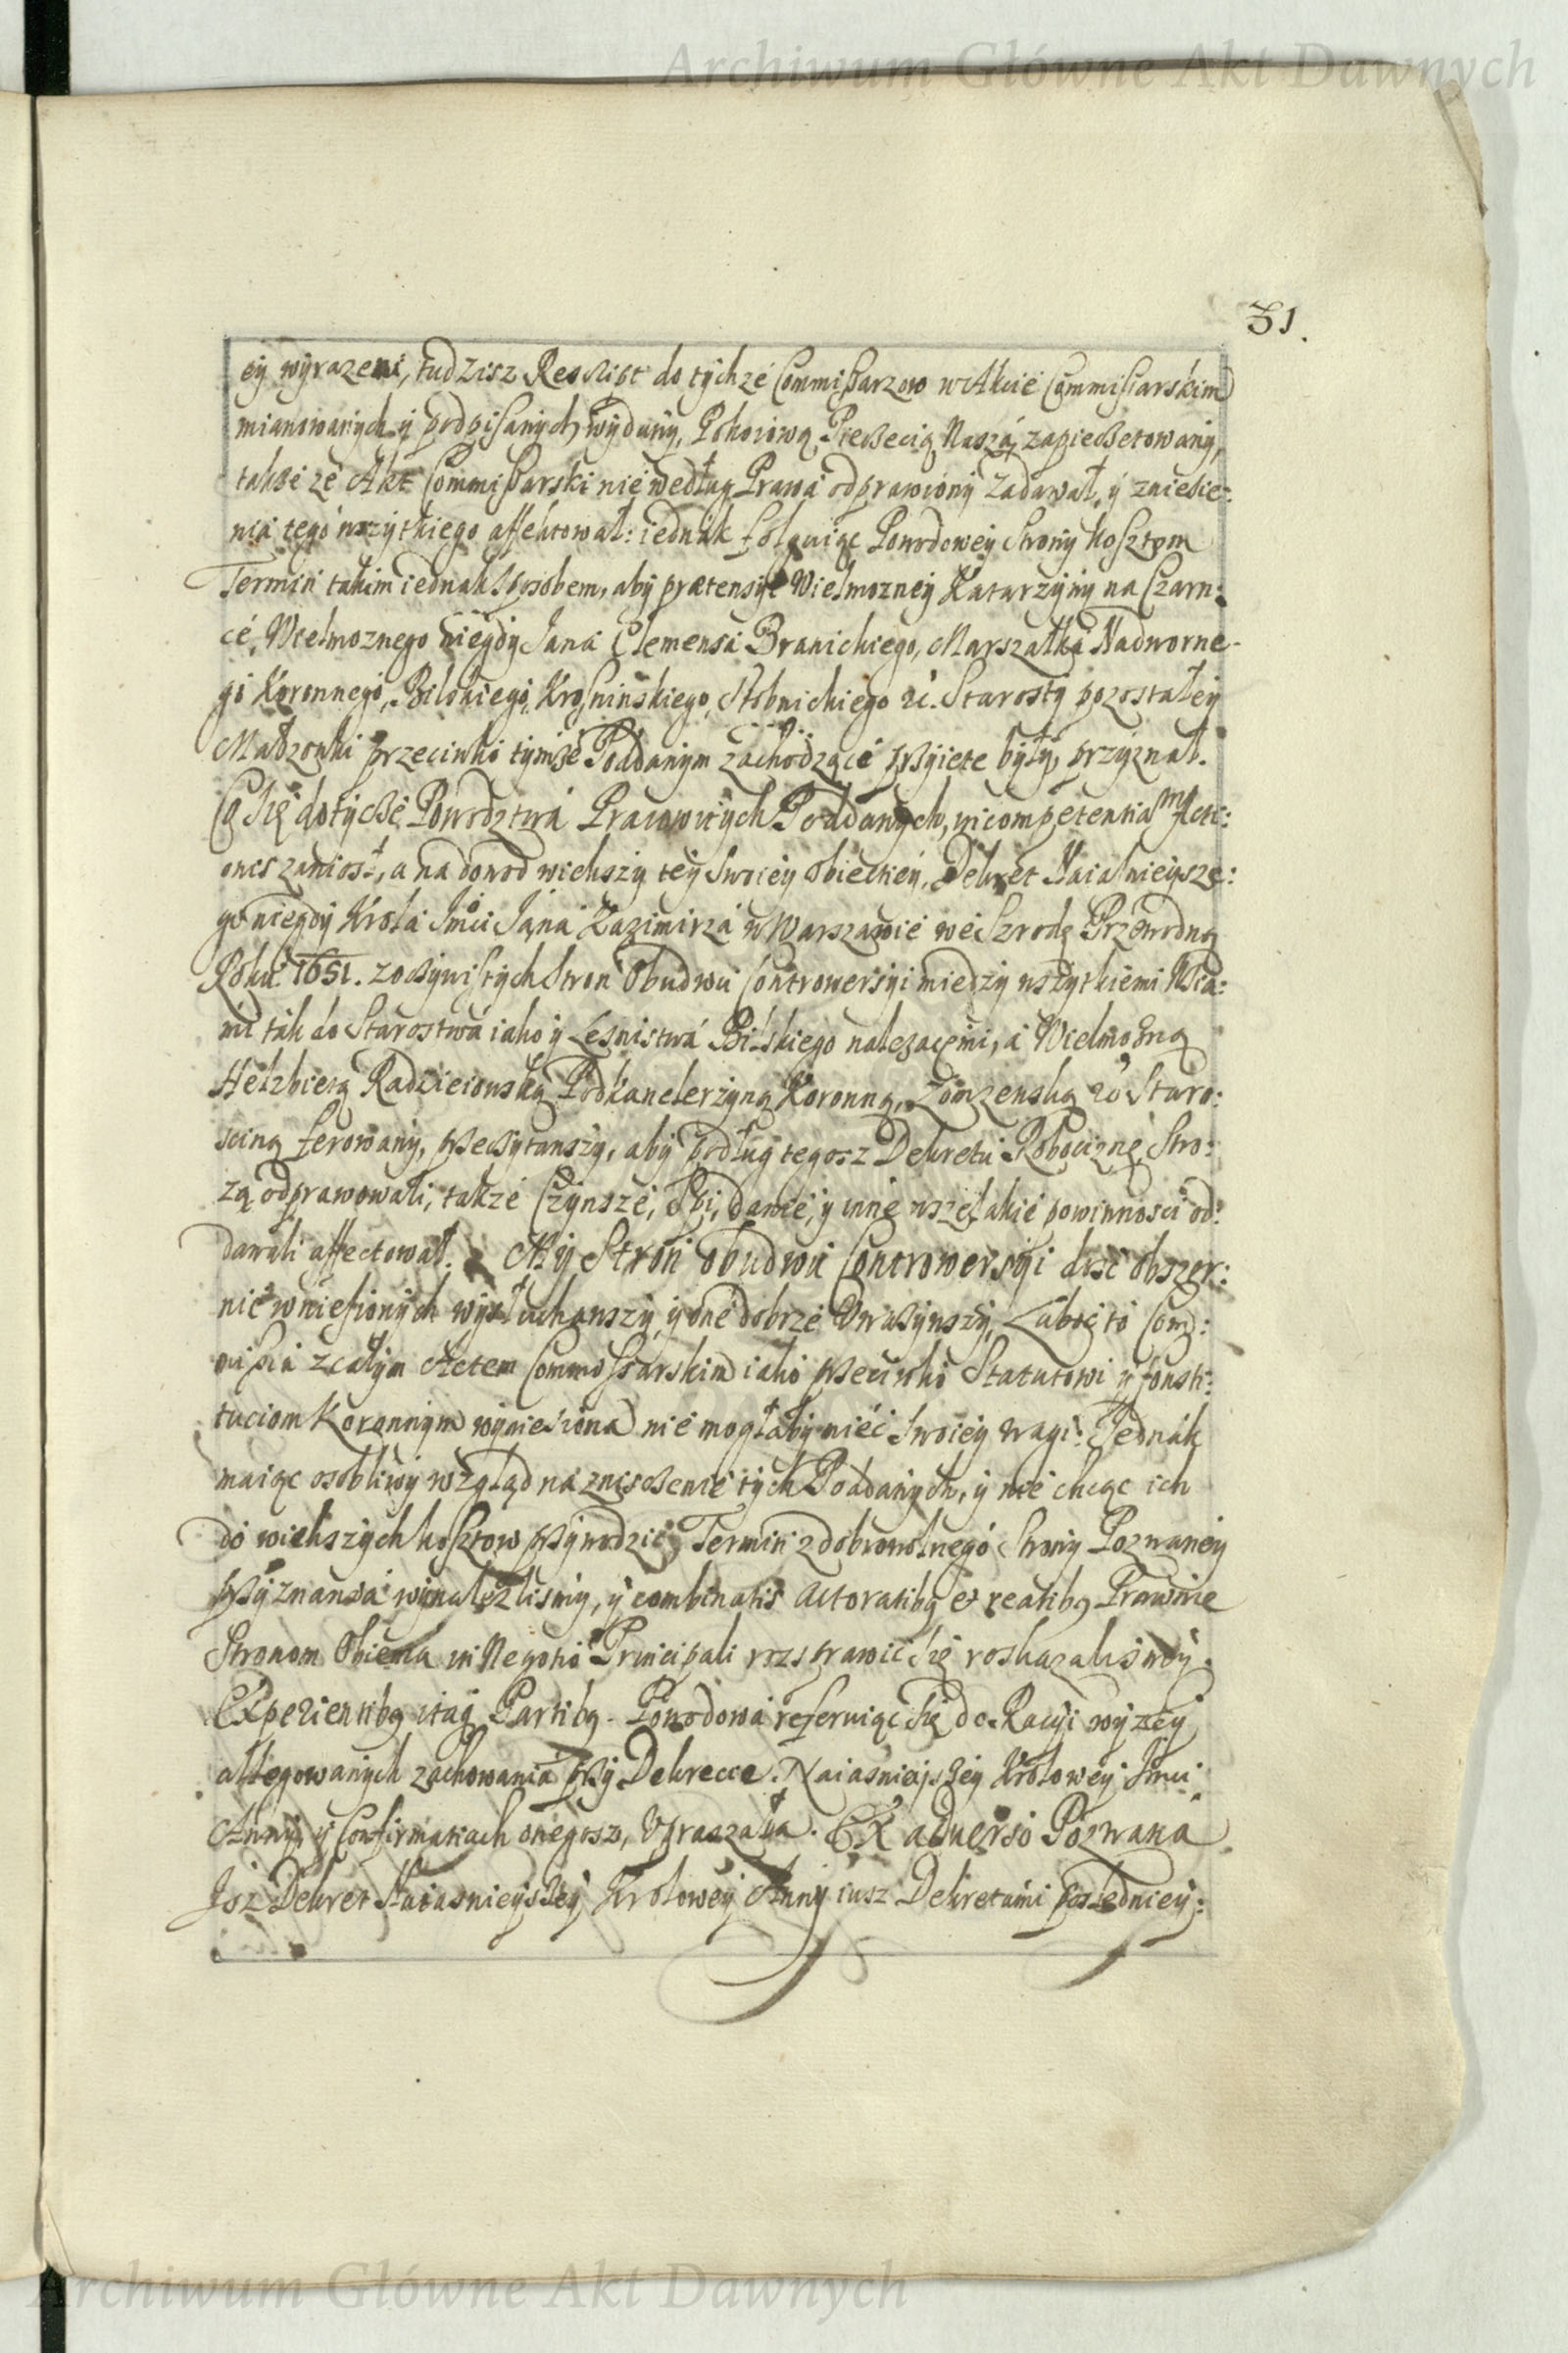 Archiwum Główne Akt Dawnych
31.
ey wyrazeni, tudzisz Reskript do tychze Commissarzow w Akcie Commissarskim
mianowanych y podpisanych wydany, Pokoiową Pieczecią Naszą zapieczetowany,
takze ze Akt Commissarski nie według Prawa odprawiony zadawał, y zniesie:
nia tego wszytkiego affektował: iednak folguiąc Powodowey Strony kosztom
Termin takim iednak sposobem, aby prætensye Wielmozney Katarzyny na Czarn:
ce, Wielmoznego niegdy Jana Clemensa Branickiego, Marszałka Nadworne-
go Koronnego, Bilskiego, Krosninskiego, Stobnickiego &c. Starosty pozostałey
Małzonki przeciwko tymze Poddanym zachodzące przyiete były, przyznał.
Co się dotycze Powodztwa Pracowitych Poddanych, incompetentiam Acti:
onis zaniosł, a na dowod wiekszy tey swoiey obiectiey, Dekret Naiasnieysze:
go niegdy Krola Jmci Jana Kazimirza w Warszawie we Szrodę Przewodną
Roku 1651. z oczywistych Stron Obudwu Controwersyi miedzy wszytkiemi Wsia:
mi tak do Starostwa iako y Lesnistwa Bilskiego nalezącemi, a Wielmozną
Helzbietą Radzieiowską Podkanclerzyną Koronną, Łomzenską &c Staro:
sciną ferowany, przeczytawszy, aby podług tegosz Dekretu Robociznę, Stro:
zą odprawowali, takze Czynsze, Spi, danie, y inne wszelakie powinnosci od:
dawali affectował. My Stron obudwu Controwersyi dosc obszer:
nie wniesionych wysłuchawszy, y one dobrze Uwazywszy, Luboc to Com:
missia z całym Actem Commissarskim iako przeciwko Statutowi y Consti:
tuciom Koronnym wyniesiona nie mogłaby miec swoiey wagi: Jednak
maiąc osobliwy wzgląd na zniszczenie tych Poddanych, y nie chcąc ich
do wiekszych kosztow przywodzic, Termin z dobrowolnego Strony Pozwaney
przyznania wynalezlismy, y combinatis actoratibq & reatibq Prawnie
Stronom Obiema in Negotio Principali rozprawic się roskazalismy.
Experientibq itaq Partibq. Powodowa referuiąc się do Racyi wyzey
allegowanych zachowania przy Dekrecie Naiasnieyszey Krolowey Jmci
Anny, y Confirmatiach onegosz, Upraszała. Ex adverso Pozwana
Isz Dekret Naiasnieyszey Krolowey Anny iusz Dekretami posledniey:
Archiwum Główne Akt Dawnych